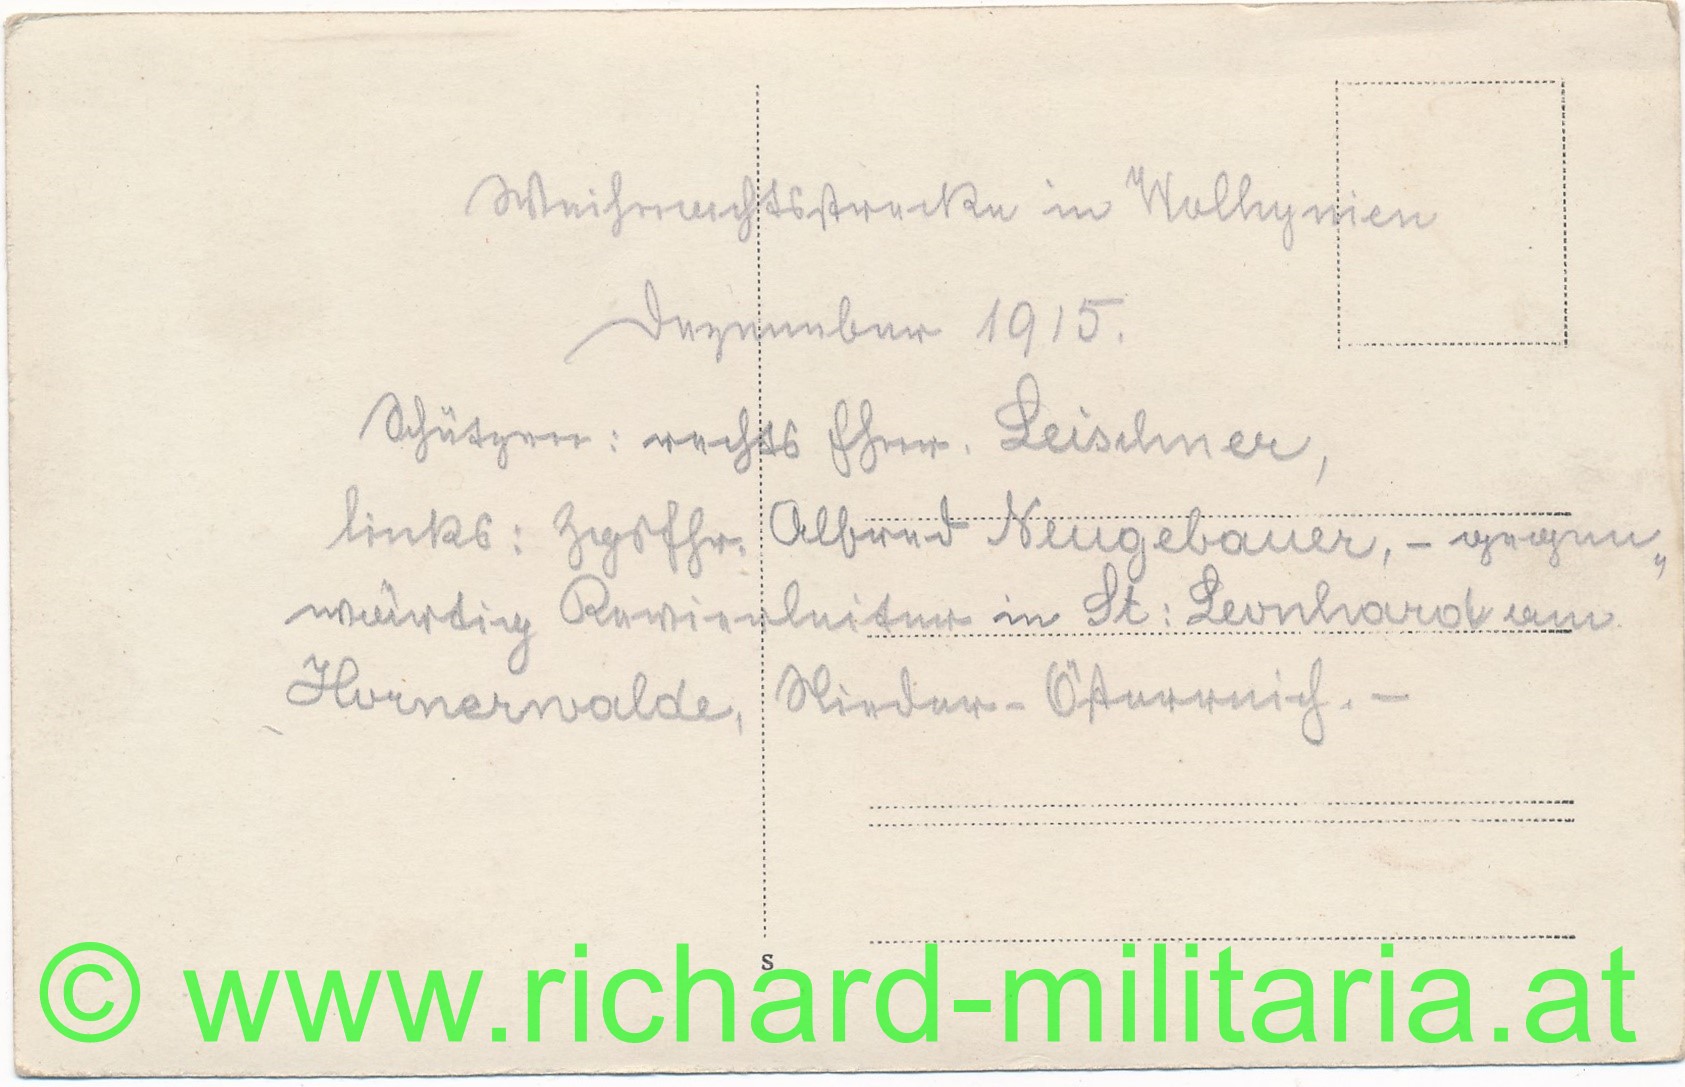 Weihnachtsstrecke in Wolhynien
Dezember 1915.
Schützen: rechts Fhnr. Leischner,
links: Zgsfhr. Alfred Neugebauer, – gegen„
wärtig Revierleiter in St: Leonhard am
Hornerwalde, Nieder-Österreich. –
S
© www.richard-militaria.at